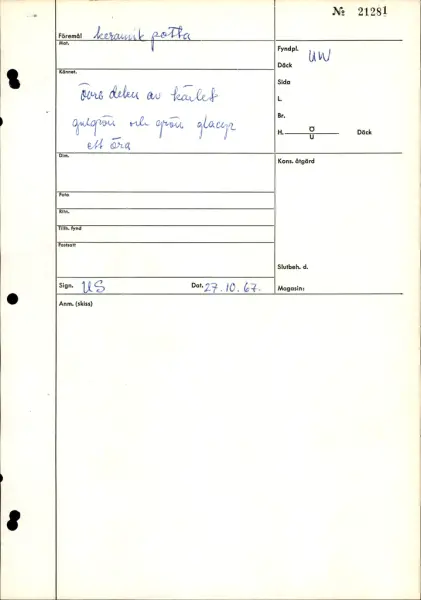 № 21281
Föremål keramik potta
Mat.
Fyndpl. UW
Däck
Sida
L.
Br.
H. Ö/U Däck
Kännet.
övre delen av kärlet
gulgrön och grön glacyr
ett öra
Dim.
Kons. åtgärd
Foto
Ritn.
Tillh. fynd
Fastsatt
Slutbeh. d.
Sign. US Dat. 27.10.67.
Magasin:
Anm. (skiss)